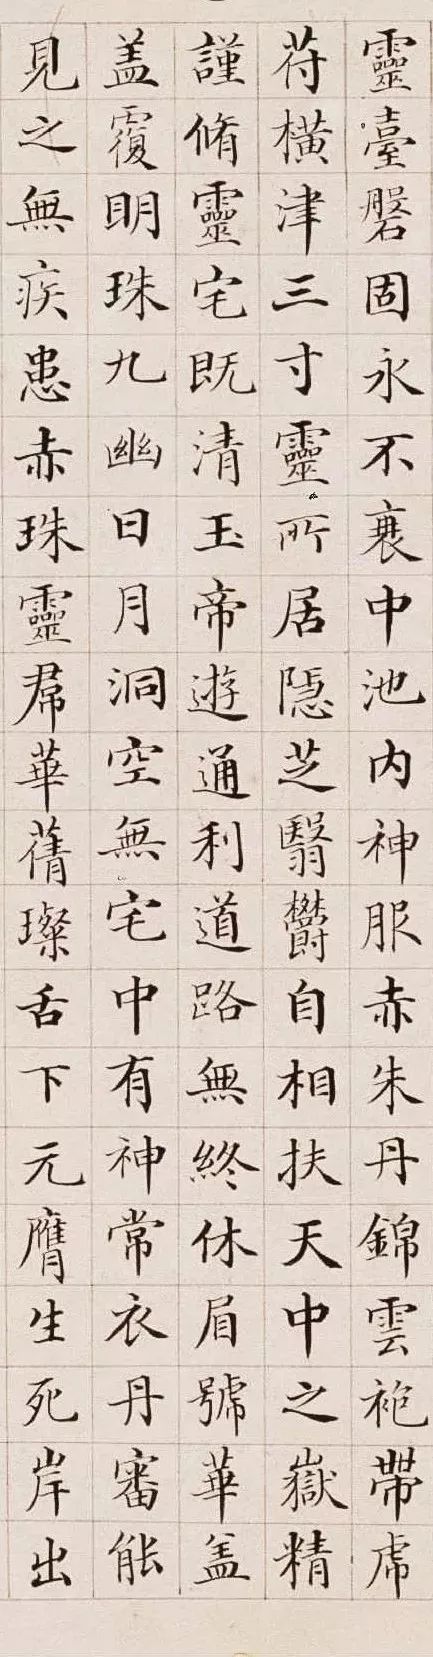 靈臺磐固永不衰中池内神服赤朱丹錦雲袍帶虎
苻橫津三寸靈所居隱芝翳欝自相扶天中之嶽精
謹脩靈宅既清玉帝遊通利道路無終休眉號華盖
盖覆明珠九幽日月洞空無宅中有神常衣丹審能
見之無疾患赤珠靈帬華蒨璨舌下元膺生死岸出